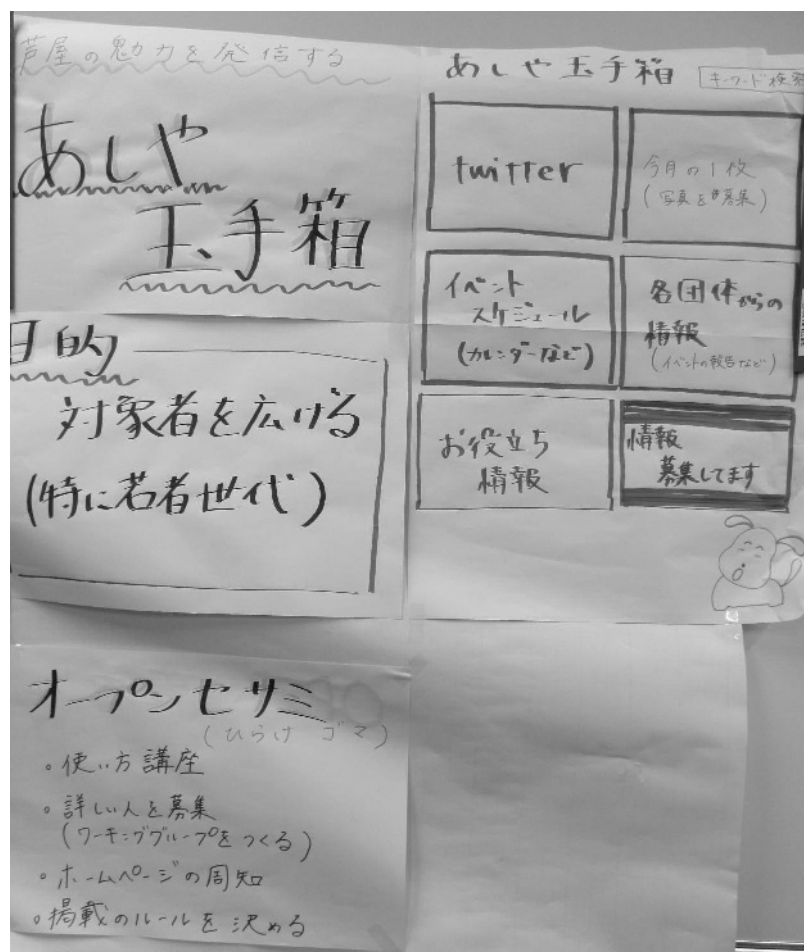 芦屋の魅力を発信する
あしや
玉手箱
目的
対象者を広げる
(特に若者世代)
オープンセサミ
(ひらけ ゴマ)
・使い方講座
・詳しい人を募集
(ワーキンググループをつくる)
・ホームページの周知
・掲載のルールを決める
あしや玉手箱
キーワード検索
twitter
今月の1枚
(写真を募集)
イベント
スケジュール
(カレンダーなど)
各団体からの
情報
(イベントの報告など)
お役立ち
情報
情報
募集してます